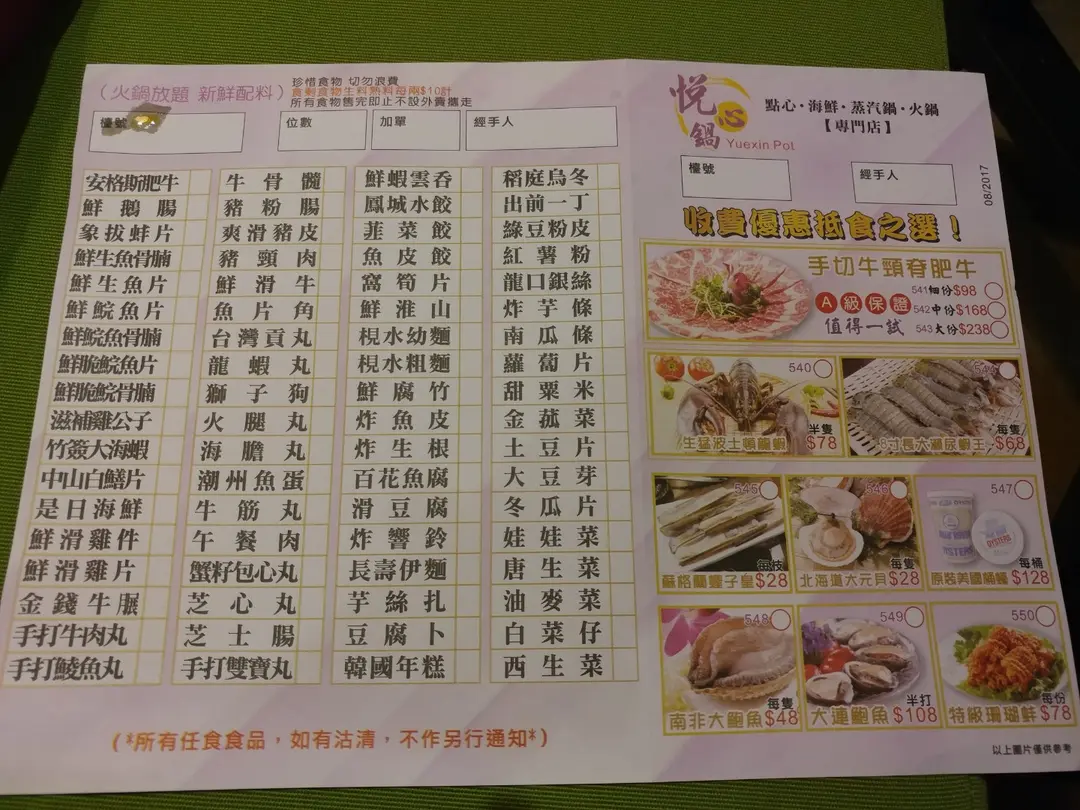 （火鍋放題 新鮮配料）
珍惜食物 切勿浪費
食剩食物生料熟料每兩$10計
所有食物售完即止不設外賣攜走
檯號
位數
加單
經手人
安格斯肥牛
鮮鵝腸
象拔蚌片
鮮生魚骨腩
鮮生魚片
鮮鯇魚片
鮮鯇魚骨腩
鮮脆鯇魚片
鮮脆鯇骨腩
滋補雞公子
竹簽大海蝦
中山白鱔片
是日海鮮
鮮滑雞件
鮮滑雞片
金錢牛𦟌
手打牛肉丸
手打鯪魚丸
牛骨髓
豬粉腸
爽滑豬皮
豬頸肉
鮮滑牛
魚片角
台灣貢丸
龍蝦丸
獅子狗
火腿丸
海膽丸
潮州魚蛋
牛筋丸
午餐肉
蟹籽包心丸
芝心丸
芝士腸
手打雙寶丸
鮮蝦雲吞
鳳城水餃
韮菜餃
魚皮餃
窩筍片
鮮淮山
梘水幼麵
梘水粗麵
鮮腐竹
炸魚皮
炸生根
百花魚腐
滑豆腐
炸響鈴
長壽伊麵
芋絲扎
豆腐卜
韓國年糕
稻庭烏冬
出前一丁
綠豆粉皮
紅薯粉
龍口銀絲
炸芋條
南瓜條
蘿蔔片
甜粟米
金菰菜
土豆片
大豆芽
冬瓜片
娃娃菜
唐生菜
油麥菜
白菜仔
西生菜
（*所有任食食品，如有沽清，不作另行通知*）
悅心鍋
Yuexin Pot
點心·海鮮·蒸汽鍋·火鍋
【專門店】
檯號
經手人
08/2017
收費優惠抵食之選！
手切牛頸脊肥牛
A級保證
值得一試
541細份$98
542中份$168
543大份$238
540
生猛波士頓龍蝦
半隻
$78
544
8寸長大瀨尿蝦王
每隻
$68
545
蘇格蘭蟶子皇
每枝
$28
546
北海道大元貝
每隻
$28
547
原裝美國桶蠔
每桶
$128
548
南非大鮑魚
每隻
$48
549
大連鮑魚
半打
$108
550
特級珊瑚蚌
每份
$78
以上圖片僅供參考